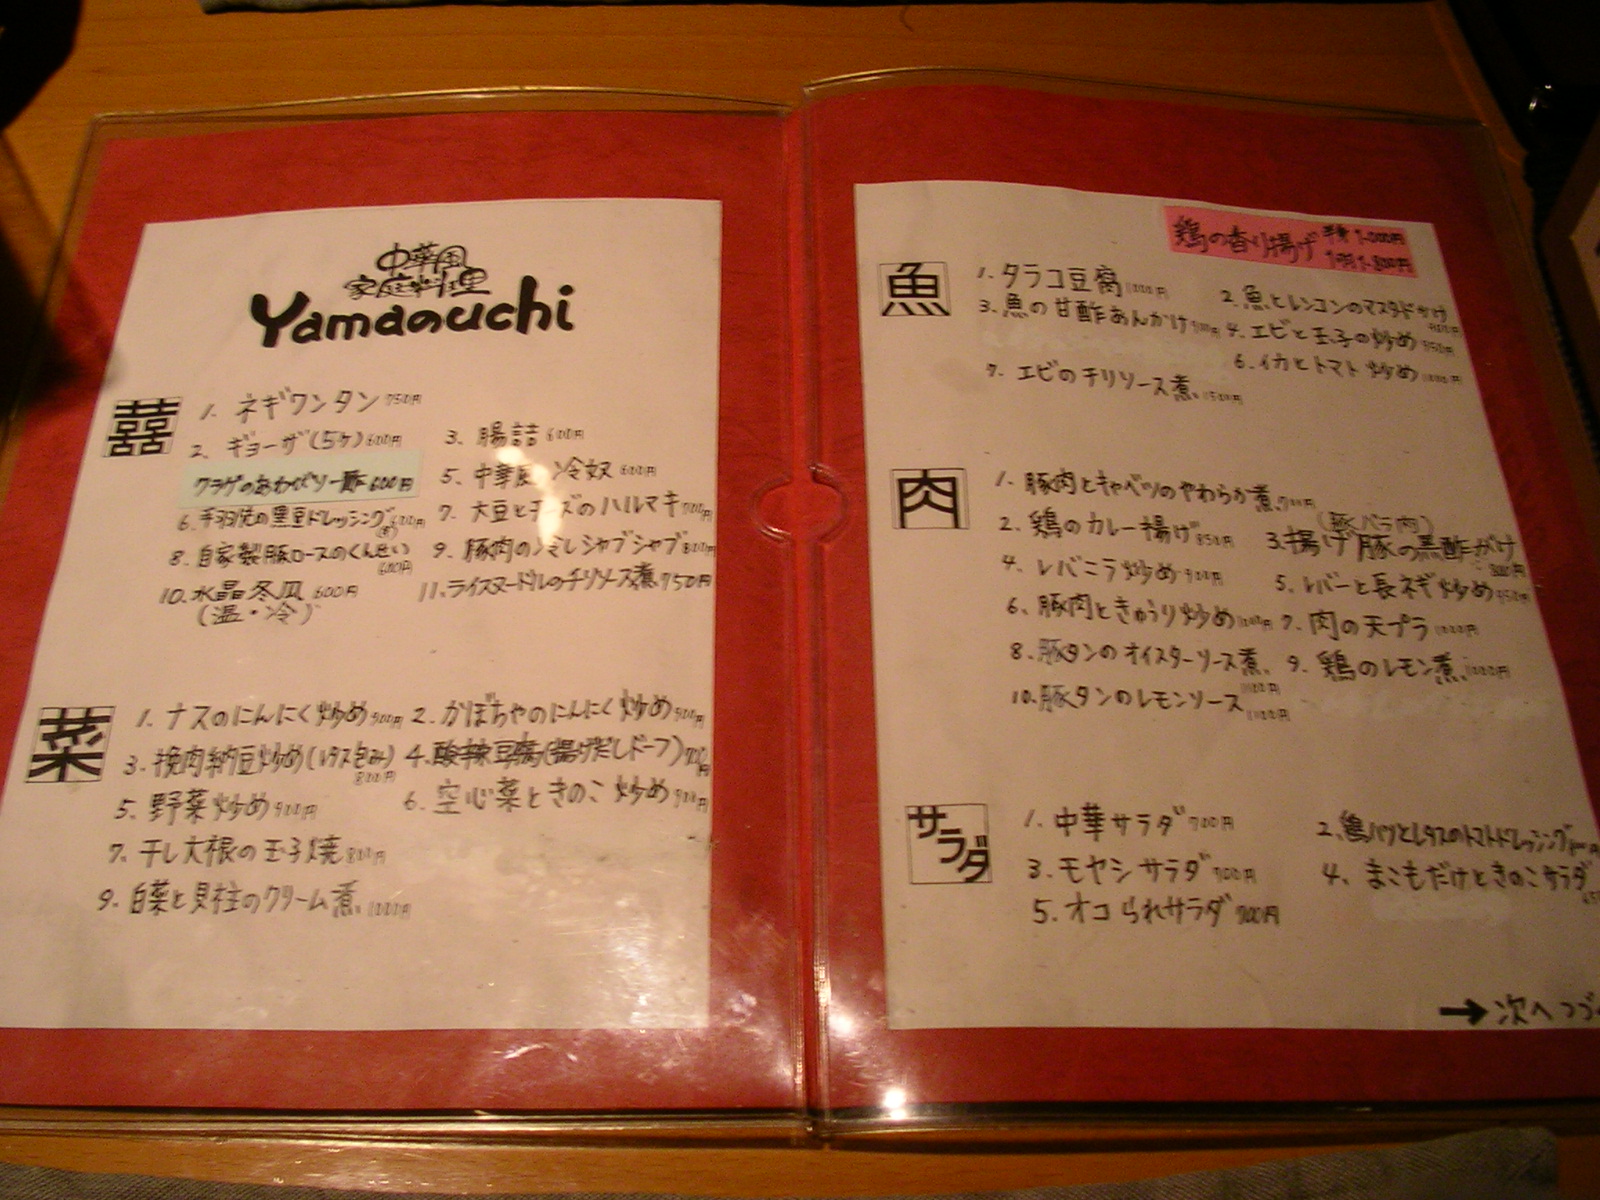 中華風
家庭料理
Yamanouchi
囍
1. ネギワンタン 750円
2. ギョーザ(5ケ) 600円
3. 腸詰 600円
クラゲのあわびソース 600円
5. 中華風 冷奴 600円
6. 手羽先の黒豆ドレッシング 600円
7. 大豆とチーズのハルマキ 700円
8. 自家製豚ロースのくんせい 600円
9. 豚肉の冷しシャブシャブ 800円
10. 水晶冬瓜 600円
(温・冷)
11. ライスヌードルのチリソース煮 750円
菜
1. ナスのにんにく炒め 900円
2. かぼちゃのにんにく炒め 900円
3. 挽肉納豆炒め(レタス包み) 800円
4. 酸辣豆腐(揚げだしドーフ) 700円
5. 野菜炒め 900円
6. 空心菜ときのこ炒め 900円
7. 干し大根の玉子焼 800円
9. 白菜と貝柱のクリーム煮 1000円
鶏の香り揚げ 半身 1,000円
1羽 1,800円
魚
1. タラコ豆腐 1000円
2. 魚とレンコンのマスタードかけ
3. 魚の甘酢あんかけ 900円
4. エビと玉子の炒め 950円
6. イカとトマト炒め 1000円
7. エビのチリソース煮 1500円
肉
1. 豚肉とキャベツのやわらか煮 900円
2. 鶏のカレー揚げ 850円
(豚バラ肉)
3. 揚げ豚の黒酢がけ
4. レバニラ炒め 900円
5. レバーと長ネギ炒め 950円
6. 豚肉ときゅうり炒め 1000円
7. 肉の天プラ 1000円
8. 豚タンのオイスターソース煮 1100円
9. 鶏のレモン煮 1000円
10. 豚タンのレモンソース 1100円
サラダ
1. 中華サラダ 700円
2. 鶏ハツとレタスのトマトドレッシング
3. モヤシサラダ 700円
4. まこもだけときのこサラダ
5. オコられサラダ 700円
→次へつづ